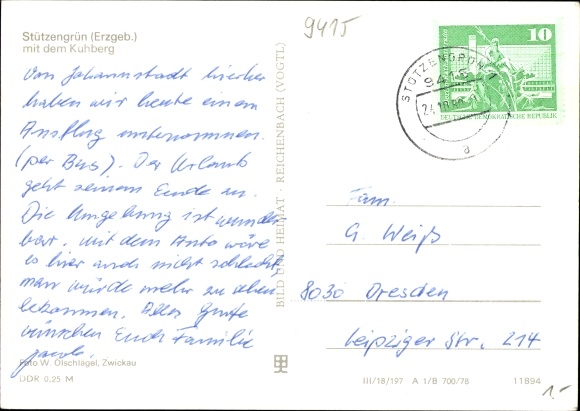 Stützengrün (Erzgeb.)
mit dem Kuhberg
Von Johannstadt hierher
haben wir heute einen
Ausflug unternommen.
(per Bus). Der Urlaub
geht seinem Ende zu.
Die Umgebung ist wunder-
bar, mit dem Auto wäre
es hier auch nicht schlecht,
man würde mehr zu sehen
bekommen. Alles Gute
wünschen Euch Familie
Foto W. Olschlägel, Zwickau
DDR 0,25 M
BILD UND HEIMAT · REICHENBACH (VOGTL)
9415
10
DEUTSCHE DEMOKRATISCHE REPUBLIK
STÜTZENGRÜN 1
9415
a
Fam.
G. Weiß
8030 Dresden
Leipziger Str. 214
III/18/197 A 1/B 700/78 11894
1.-